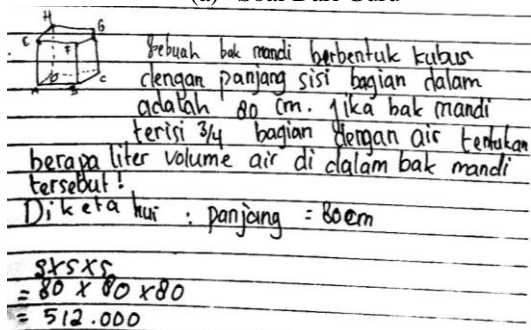 (a) Soal Dari Guru
H
G
E
F
D
C
A
B
Sebuah bak mandi berbentuk kubus
dengan panjang sisi bagian dalam
adalah 80 cm. Jika bak mandi
terisi 3/4 bagian dengan air tentukan
berapa liter volume air di dalam bak mandi
tersebut!
Diketahui : panjang = 80cm
s x s x s
= 80 x 80 x 80
= 512.000